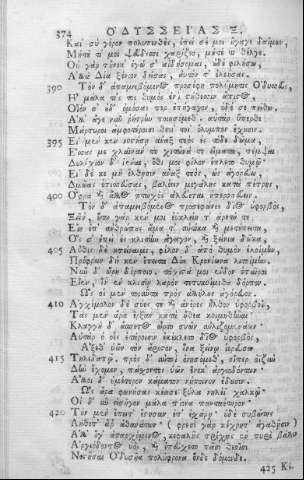 374 ΟΔΥΣΣΕΙΑΣ Ξ.
Καὶ σὺ γέρον πολυπενθὲς, ἐπεὶ σέ μοι ἤγαγε δαίμων,
Μήτε τί μοι ψεύδεσσι χαρίζεο, μήτε τι θέλγε.
Οὐ γὰρ τούνεκ' ἐγώ σ' αἰδέσσομαι, οὐδὲ φιλήσω,
Ἀλλὰ Δία ξένιον δείσας, αὐτόν τ' ἐλεαίρων.
390 Τὸν δ' ἀπαμειβόμενος προσέφη πολύμητις Ὀδυσσεὺς,
Ἦ μάλα τίς τοι θυμὸς ἐνὶ στήθεσσιν ἄπιστος,
Οἷόν σ' οὐδ' ὀμόσας περ ἐπήγαγον, οὐδέ σε πείθω.
Ἀλλ' ἄγε νῦν ῥήτρην ποιησόμεθ'· αὐτὰρ ὕπερθε
Μάρτυροι ἀμφοτέροισι θεοὶ τοὶ ὄλυμπον ἔχουσιν.
395 Εἰ μέν κεν νοστήσῃ ἄναξ τεὸς ἐς τόδε δῶμα,
Ἕσσας με χλαῖνάν τε χιτῶνά τε εἵματα, πέμψαι
Δουλίχιόνδ' ἰέναι, ὅθι μοι φίλον ἔπλετο θυμῷ·
Εἰ δέ κε μὴ ἔλθῃσιν ἄναξ τεὸς, ὡς ἀγορεύω,
Δμῶας ἐπισσεύας, βαλέειν μεγάλης κατὰ πέτρης,
400 Ὄφρα καὶ ἄλλος πτωχὸς ἀλεύεται ἠπεροπεύειν.
Τὸν δ' ἀπαμειβόμενος προσεφώνεε δῖος ὑφορβὸς,
Ξεῖν', οὕτω γάρ κέν μοι ἐϋκλείη τ' ἀρετή τε
Εἴη ἐπ' ἀνθρώπους ἅμα τ' αὐτίκα καὶ μετέπειτα,
Ὅς σ' ἐπεὶ ἐς κλισίην ἄγαγον, καὶ ξείνια δῶκα,
405 Αὖθις δὲ κτείναιμι, φίλον τ' ἀπὸ θυμὸν ἑλοίμην,
Πρόφρων δή κεν ἔπειτα Δία Κρονίωνα λιτοίμην.
Νῦν δ' ὥρη δόρποιο· τάχιστά μοι ἔνδον ἑταῖροι
Εἶεν, ἵν' ἐν κλισίῃ λαρὸν τετυκοίμεθα δόρπον.
Ὣς οἱ μὲν τοιαῦτα πρὸς ἀλλήλους ἀγόρευον.
410 Ἀγχίμολον δὲ σύες τε καὶ ἀνέρες ἦλθον ὑφορβοὶ,
Τὰς μὲν ἄρα ἔρξαν κατὰ ἤθεα κοιμηθῆναι
Κλαγγὴ δ' ἄσπετος ὦρτο συῶν αὐλιζομενάων·
Αὐτὰρ ὁ οἷς ἑτάροισιν ἐκέκλετο δῖος ὑφορβὸς,
Ἄξεθ' ὑῶν τὸν ἄριστον, ἵνα ξείνῳ ἱερεύσω
415 Τηλεδαπῷ, πρὸς δ' αὐτοὶ ὀνησόμεθ', οἵπερ ὀϊζὺν
Δὴν ἔχομεν, πάσχοντες ὑῶν ἕνεκ' ἀργιοδόντων·
Ἄλλοι δ' ἡμέτερον κάματον νήποινον ἔδουσιν.
Ὣς ἄρα φωνήσας κέασε ξύλα νηλέϊ χαλκῷ·
Οἱ δ' ὗν εἰσῆγον μάλα πίονα πενταέτηρον·
420 Τὸν μὲν ἔπειτ' ἔστησαν ἐπ' ἐσχάρῃ· οὐδὲ συβώτης
Λήθετ' ἄρ' ἀθανάτων· (φρεσὶ γὰρ κέχρητ' ἀγαθῇσιν)
Ἀλλ' ὅγ' ἀπαρχόμενος, κεφαλῆς τρίχας ἐν πυρὶ βάλλεν
Ἀργιόδοντος ὑὸς, καὶ ἐπεύχετο πᾶσι θεοῖσι
Νοστῆσαι Ὀδυσῆα πολύφρονα ὅνδε δόμονδε.
425 Κέ-